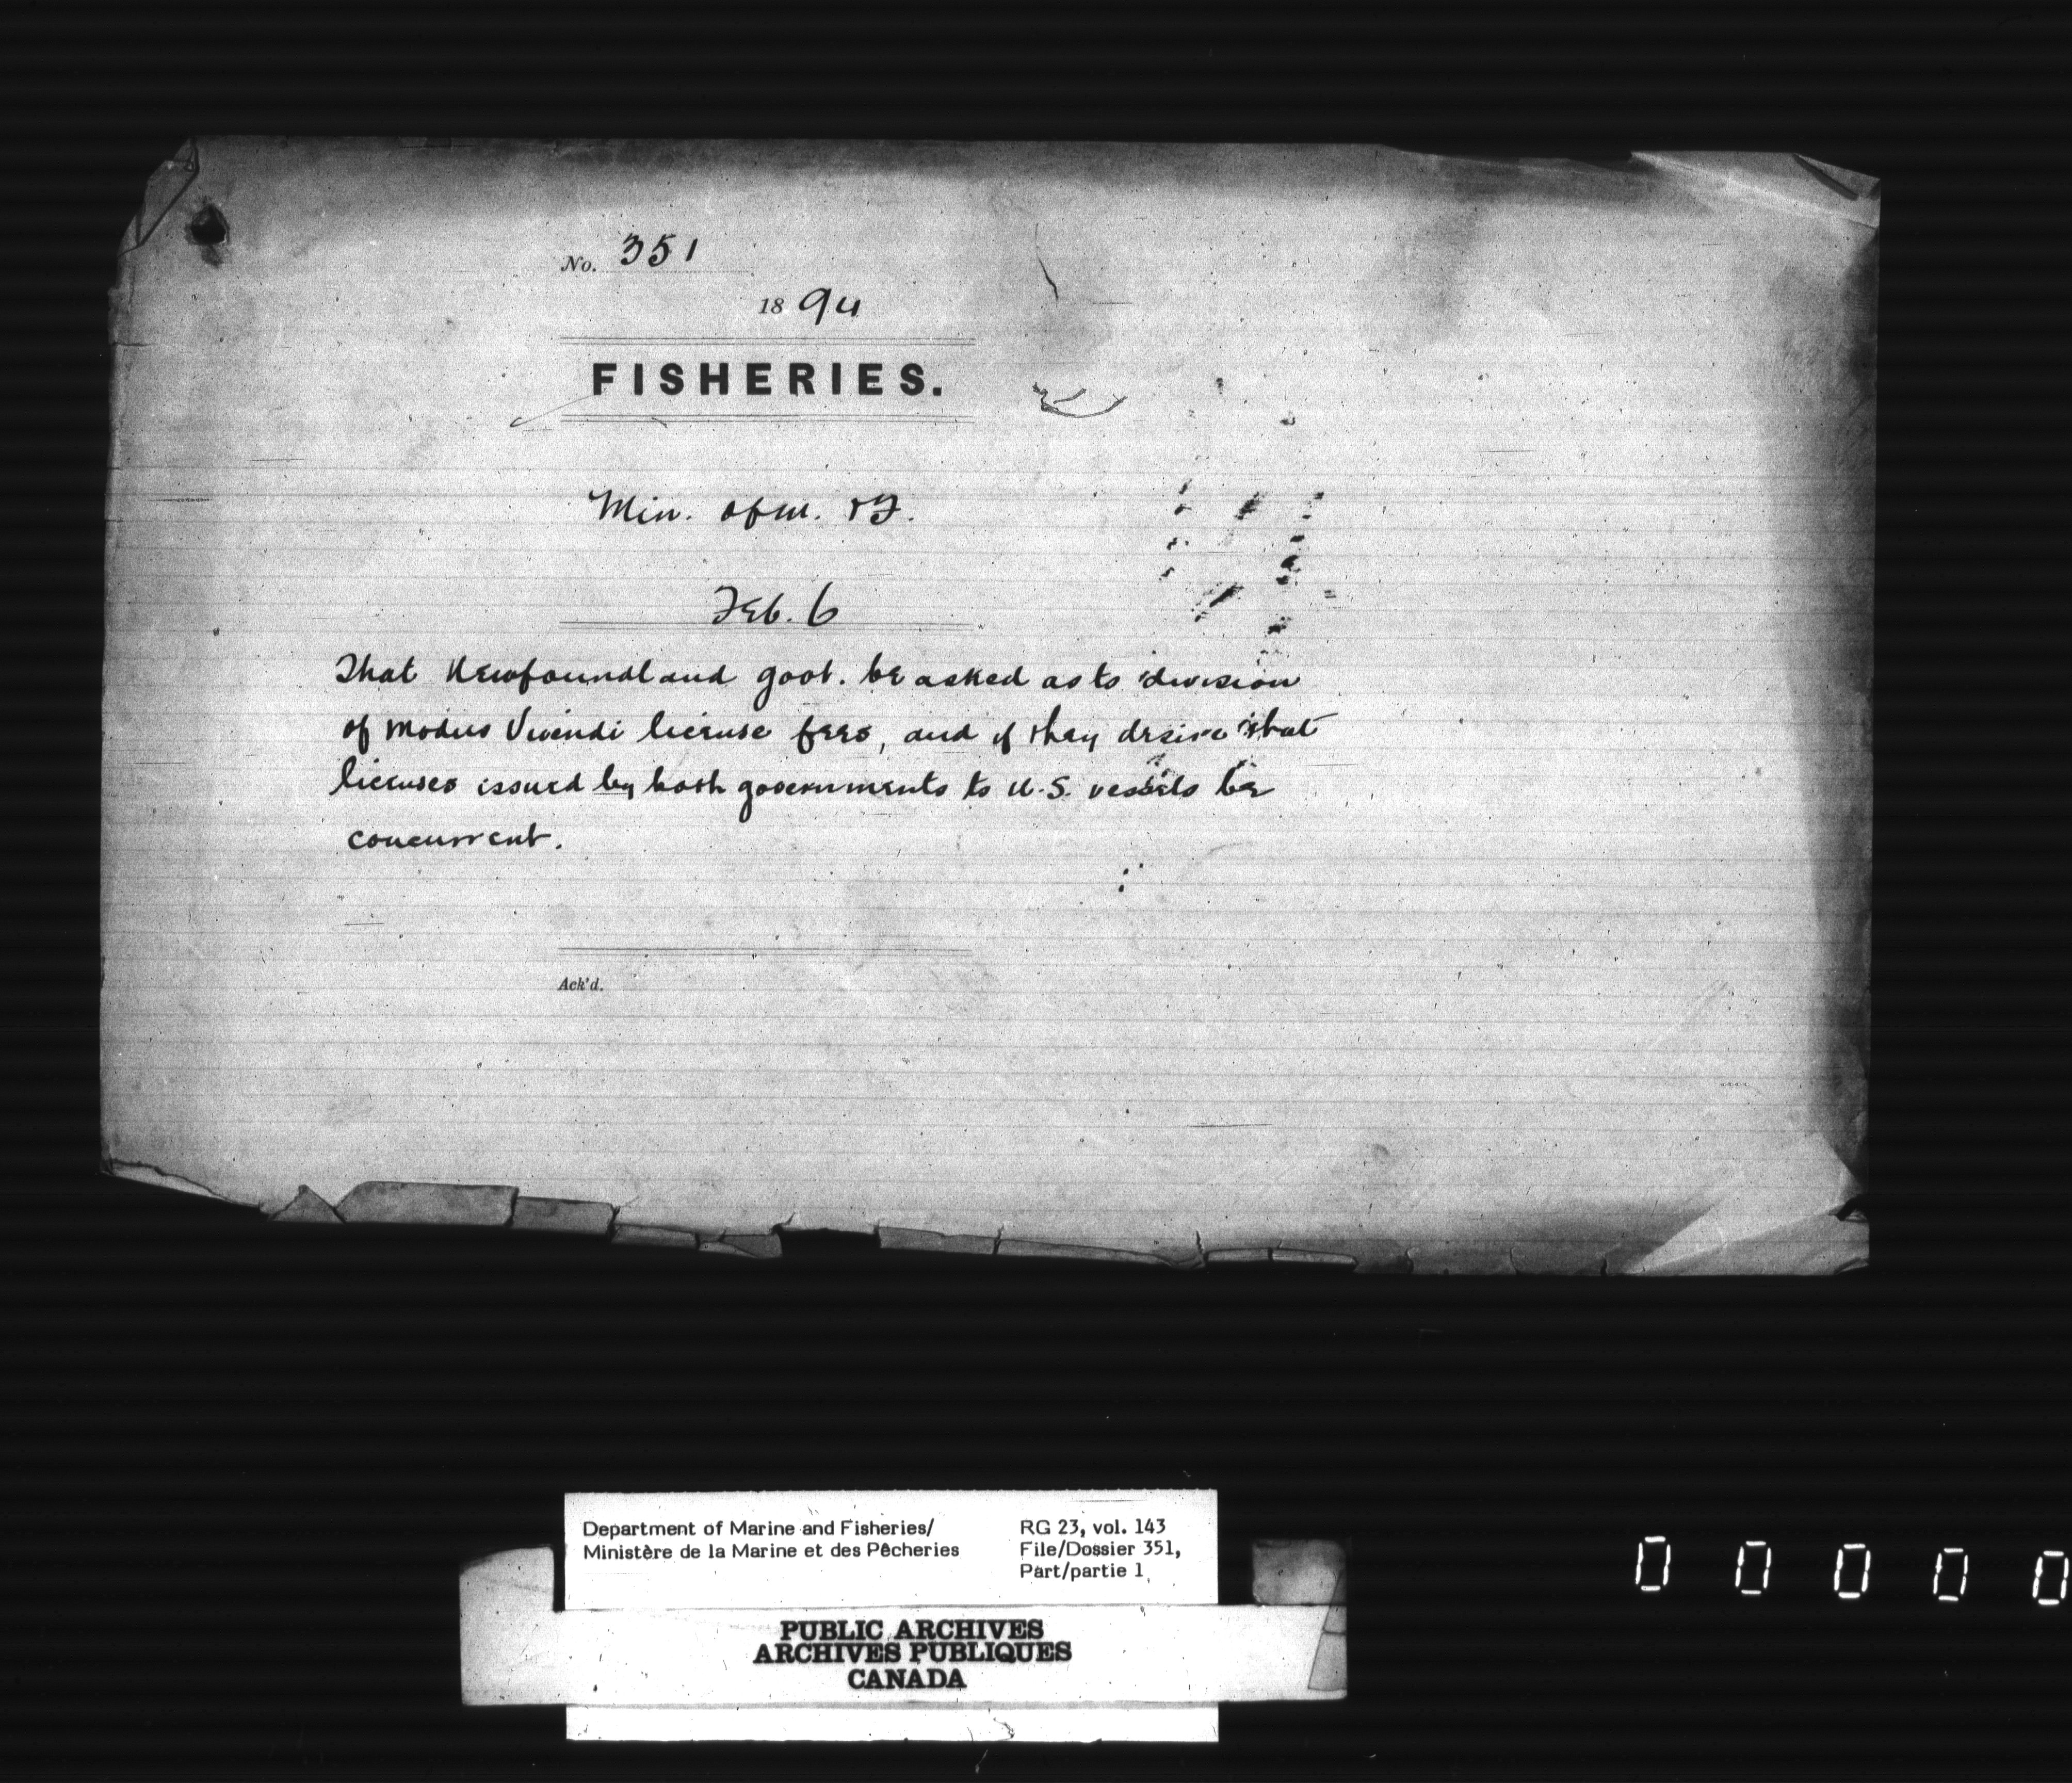 No. 351
1894
FISHERIES.
Min. of M. & F.
Feb. 6
That Newfoundland govt. be asked as to division
of Modus Vivendi license fees, and if they desire that
licenses issued by both governments to U.S. vessels be
concurrent.
Ack'd.
Department of Marine and Fisheries/
Ministère de la Marine et des Pêcheries
RG 23, vol. 143
File/Dossier 351,
Part/partie 1
PUBLIC ARCHIVES
ARCHIVES PUBLIQUES
CANADA
0 0 0 0 0